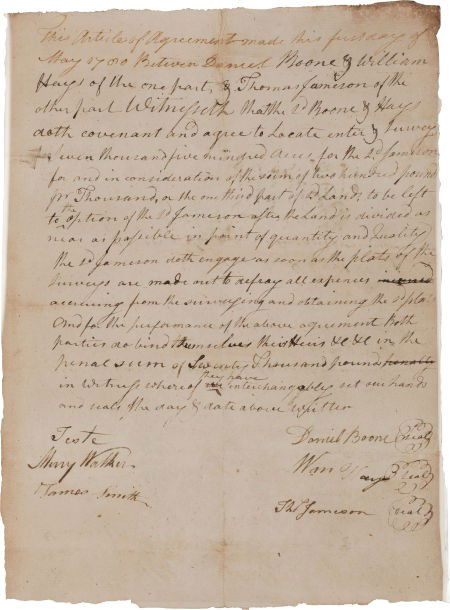 This Article of Agreement made this first day of
May 1780 Between Daniel Boone & William
Hays of the one part, & Thomas Jameson of the
other part Witnesseth that the sd Boone & Hays
doth covenant and agree to Locate enter & survey
seven thousand five hundred acres for the sd Jameson
for and in consideration of the sum of two hundred pound
pr Thousand, or the one third part of sd Land, to be left
to the option of the sd Jameson after the Land is divided as
near as possible in point of quantity and Quality
the sd Jameson doth engage as soon as the plats of the
surveys are made out to defray all expences
accruing from the surveying and obtaining the sd plats
And for the performance of the above agreement both
parties do bind themselves this Heirs &c &c in the
penal sum of Twenty Thousand pound
in Witness whereof they have interchangably set our hands
and seals the day & date above written
Teste
Daniel Boone seal
Walker
Wm Hays seal
James Smith
Ths Jameson seal